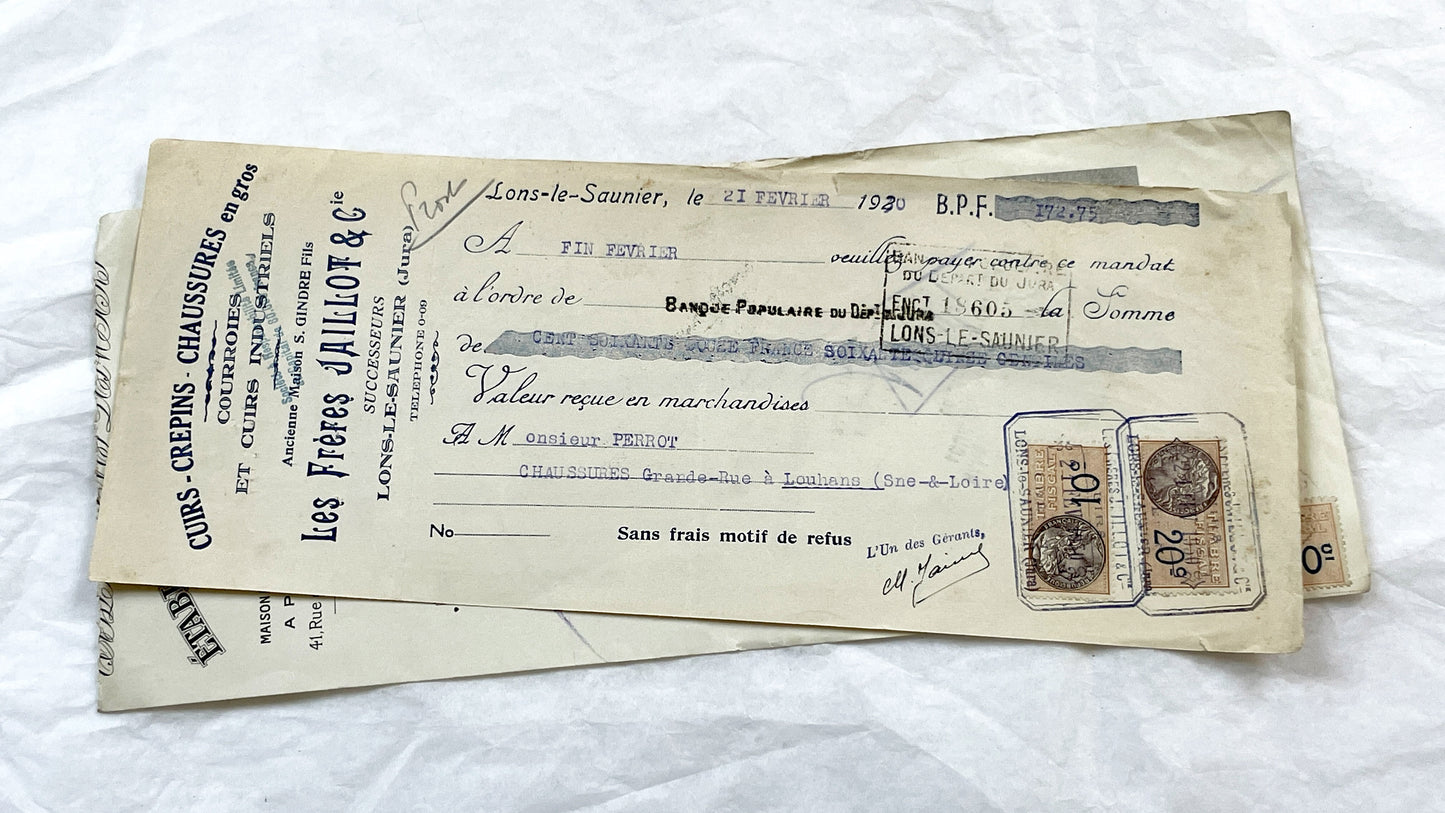 CUIRS - CREPINS - CHAUSSURES en gros
COURROIES
ET CUIRS INDUSTRIELS
Ancienne Maison S. GINDRE Fils
Les Frères JAILLOT & Cie
SUCCESSEURS
LONS-LE-SAUNIER (Jura)
TELEPHONE 0-09
Lons-le-Saunier, le 21 FEVRIER 1930 B.P.F. 172.75
A FIN FEVRIER veuillez payer contre ce mandat
à l'ordre de BANQUE POPULAIRE DU DÉPT DU JURA la Somme
DU DÉPART DU JURA
ENCT 18605
LONS-LE-SAUNIER
de CENT SOIXANTE DOUZE FRANCS SOIXANTE QUINZE CENTIMES
Valeur reçue en marchandises
A Monsieur PERROT
CHAUSSURES Grande-Rue à Louhans (Sne-&-Loire)
No
Sans frais motif de refus
L'Un des Gérants,
TIMBRE FISCAL
10c
TIMBRE FISCAL
20c
MAISON
41, Rue